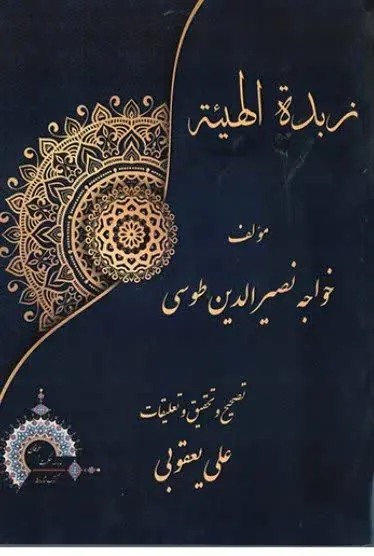 زبدة الهيئة
مؤلف
خواجه نصیرالدین طوسی
تصحیح و تحقیق و تعلیقات
علی یعقوبی